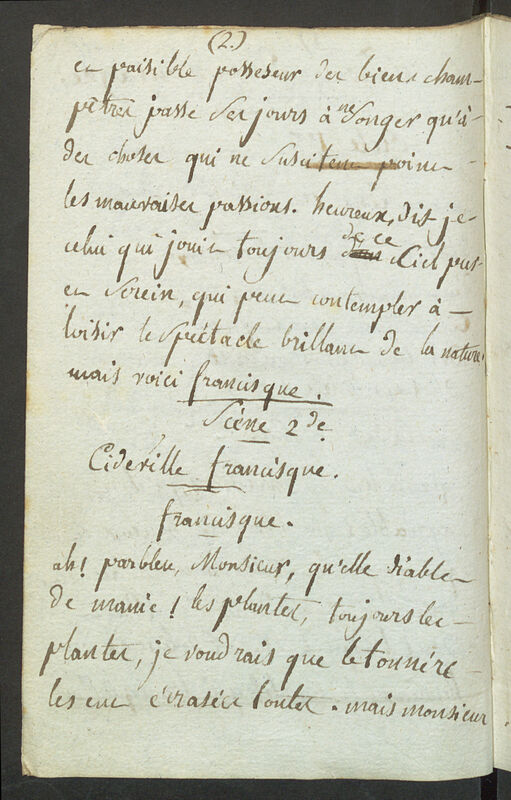 (2.)
et paisible posseseur des biens cham-
pêtres passe ses jours à ne songer qu'à
des choses qui ne suscitent point
les mauvaises passions. heureux, dis je
celui qui jouit toujours de ce Ciel pur
et serein, qui peut contempler à
loisir le spéctacle brillant de la nature.
mais voici francisque.
Scène 2de
Cideville francisque.
francisque.
ah! parbleu, Monsieur, qu'elle diable
de manie! les plantes, toujours les
plantes, je voudrais que le tonnére
les eut écrasées toutes. mais monsieur